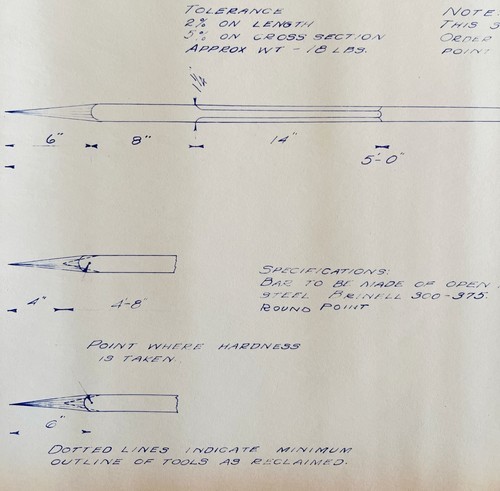 TOLERANCE
2% ON LENGTH
5% ON CROSS SECTION
APPROX WT - 18 LBS.
NOTE
THIS S
ORDER
POINT
1¼"
6" 8" 14"
5'-0"
SPECIFICATIONS:
BAR TO BE MADE OF OPEN
STEEL BRINELL 300-375.
ROUND POINT
4" 4'-8"
POINT WHERE HARDNESS
IS TAKEN.
6"
DOTTED LINES INDICATE MINIMUM
OUTLINE OF TOOLS AS RECLAIMED.